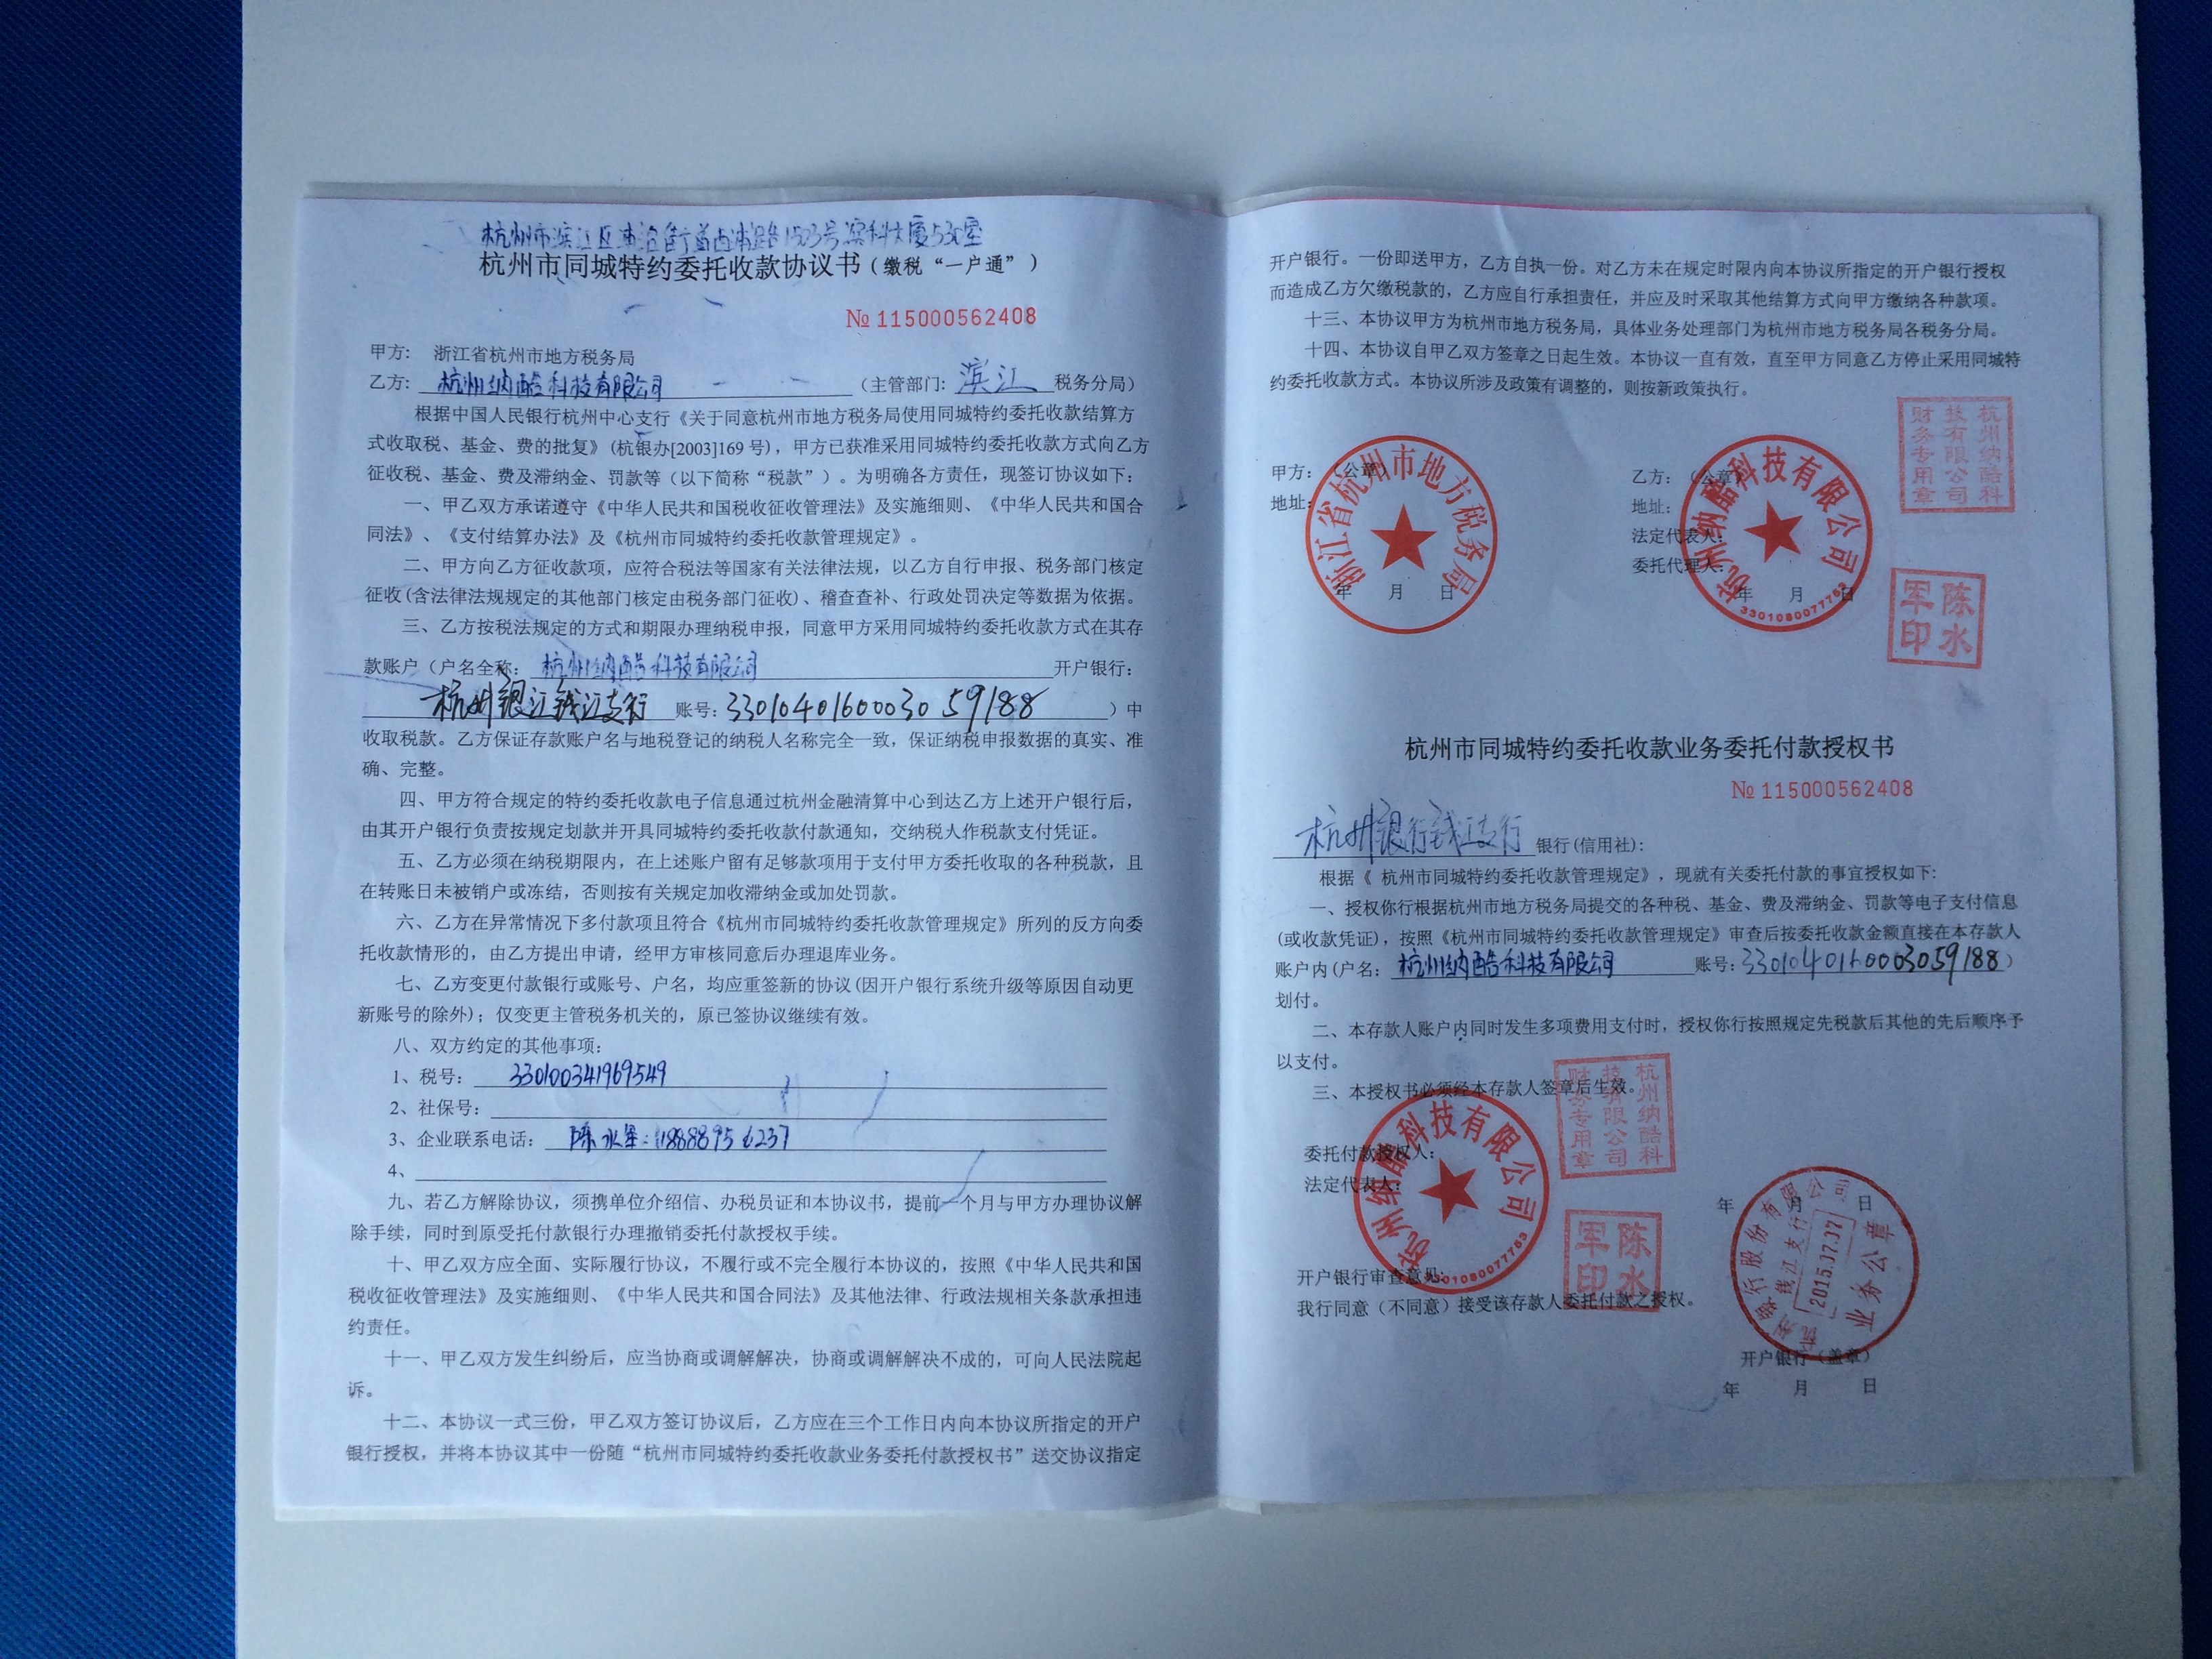 杭州市滨江区 1503号 滨科大厦530室
杭州市同城特约委托收款协议书（缴税“一户通”）
№ 115000562408
甲方： 浙江省杭州市地方税务局
乙方： 杭州纳酷科技有限公司 （主管部门： 滨江 税务分局）
根据中国人民银行杭州中心支行《关于同意杭州市地方税务局使用同城特约委托收款结算方
式收取税、基金、费的批复》(杭银办[2003]169 号)，甲方已获准采用同城特约委托收款方式向乙方
征收税、基金、费及滞纳金、罚款等（以下简称“税款”）。为明确各方责任，现签订协议如下：
一、甲乙双方承诺遵守《中华人民共和国税收征收管理法》及实施细则、《中华人民共和国合
同法》、《支付结算办法》及《杭州市同城特约委托收款管理规定》。
二、甲方向乙方征收款项，应符合税法等国家有关法律法规，以乙方自行申报、税务部门核定
征收(含法律法规规定的其他部门核定由税务部门征收)、稽查查补、行政处罚决定等数据为依据。
三、乙方按税法规定的方式和期限办理纳税申报，同意甲方采用同城特约委托收款方式在其存
款账户（户名全称： 杭州纳酷科技有限公司 开户银行：
杭州银江钱江支行 账号：3301040160003059188 ）中
收取税款。乙方保证存款账户名与地税登记的纳税人名称完全一致，保证纳税申报数据的真实、准
确、完整。
四、甲方符合规定的特约委托收款电子信息通过杭州金融清算中心到达乙方上述开户银行后，
由其开户银行负责按规定划款并开具同城特约委托收款付款通知，交纳税人作税款支付凭证。
五、乙方必须在纳税期限内，在上述账户留有足够款项用于支付甲方委托收取的各种税款，且
在转账日未被销户或冻结，否则按有关规定加收滞纳金或加处罚款。
六、乙方在异常情况下多付款项且符合《杭州市同城特约委托收款管理规定》所列的反方向委
托收款情形的，由乙方提出申请，经甲方审核同意后办理退库业务。
七、乙方变更付款银行或账号、户名，均应重签新的协议(因开户银行系统升级等原因自动更
新账号的除外)；仅变更主管税务机关的，原已签协议继续有效。
八、双方约定的其他事项：
1、税号： 330100341969549
2、社保号：
3、企业联系电话： 陈水军：18888956237
4、
九、若乙方解除协议，须携单位介绍信、办税员证和本协议书，提前一个月与甲方办理协议解
除手续，同时到原受托付款银行办理撤销委托付款授权手续。
十、甲乙双方应全面、实际履行协议，不履行或不完全履行本协议的，按照《中华人民共和国
税收征收管理法》及实施细则、《中华人民共和国合同法》及其他法律、行政法规相关条款承担违
约责任。
十一、甲乙双方发生纠纷后，应当协商或调解解决，协商或调解解决不成的，可向人民法院起
诉。
十二、本协议一式三份，甲乙双方签订协议后，乙方应在三个工作日内向本协议所指定的开户
银行授权，并将本协议其中一份随“杭州市同城特约委托收款业务委托付款授权书”送交协议指定
开户银行。一份即送甲方，乙方自执一份。对乙方未在规定时限内向本协议所指定的开户银行授权
而造成乙方欠缴税款的，乙方应自行承担责任，并应及时采取其他结算方式向甲方缴纳各种款项。
十三、本协议甲方为杭州市地方税务局，具体业务处理部门为杭州市地方税务局各税务分局。
十四、本协议自甲乙双方签章之日起生效。本协议一直有效，直至甲方同意乙方停止采用同城特
约委托收款方式。本协议所涉及政策有调整的，则按新政策执行。
杭州纳酷科技有限公司财务专用章
甲方：（公章） 乙方：（公章）
地址： 地址：
法定代表人：
委托代理人：
年 月 日 年 月 日
浙江省杭州市地方税务局
杭州纳酷科技有限公司
3301080077763
陈水军印
杭州市同城特约委托收款业务委托付款授权书
№ 115000562408
杭州银行钱江支行 银行(信用社)：
根据《 杭州市同城特约委托收款管理规定》，现就有关委托付款的事宜授权如下：
一、授权你行根据杭州市地方税务局提交的各种税、基金、费及滞纳金、罚款等电子支付信息
(或收款凭证)，按照《杭州市同城特约委托收款管理规定》审查后按委托收款金额直接在本存款人
账户内(户名： 杭州纳酷科技有限公司 账号：3301040160003059188）
划付。
二、本存款人账户内同时发生多项费用支付时，授权你行按照规定先税款后其他的先后顺序予
以支付。
三、本授权书必须经本存款人签章后生效。
杭州纳酷科技有限公司财务专用章
委托付款授权人：
法定代表人：
年 月 日
杭州纳酷科技有限公司
3301080077763
陈水军印
开户银行审查意见：
我行同意（不同意）接受该存款人委托付款之授权。
杭州银行股份有限公司
钱江支行
2015.07.07
业务公章
开户银行（盖章）
年 月 日